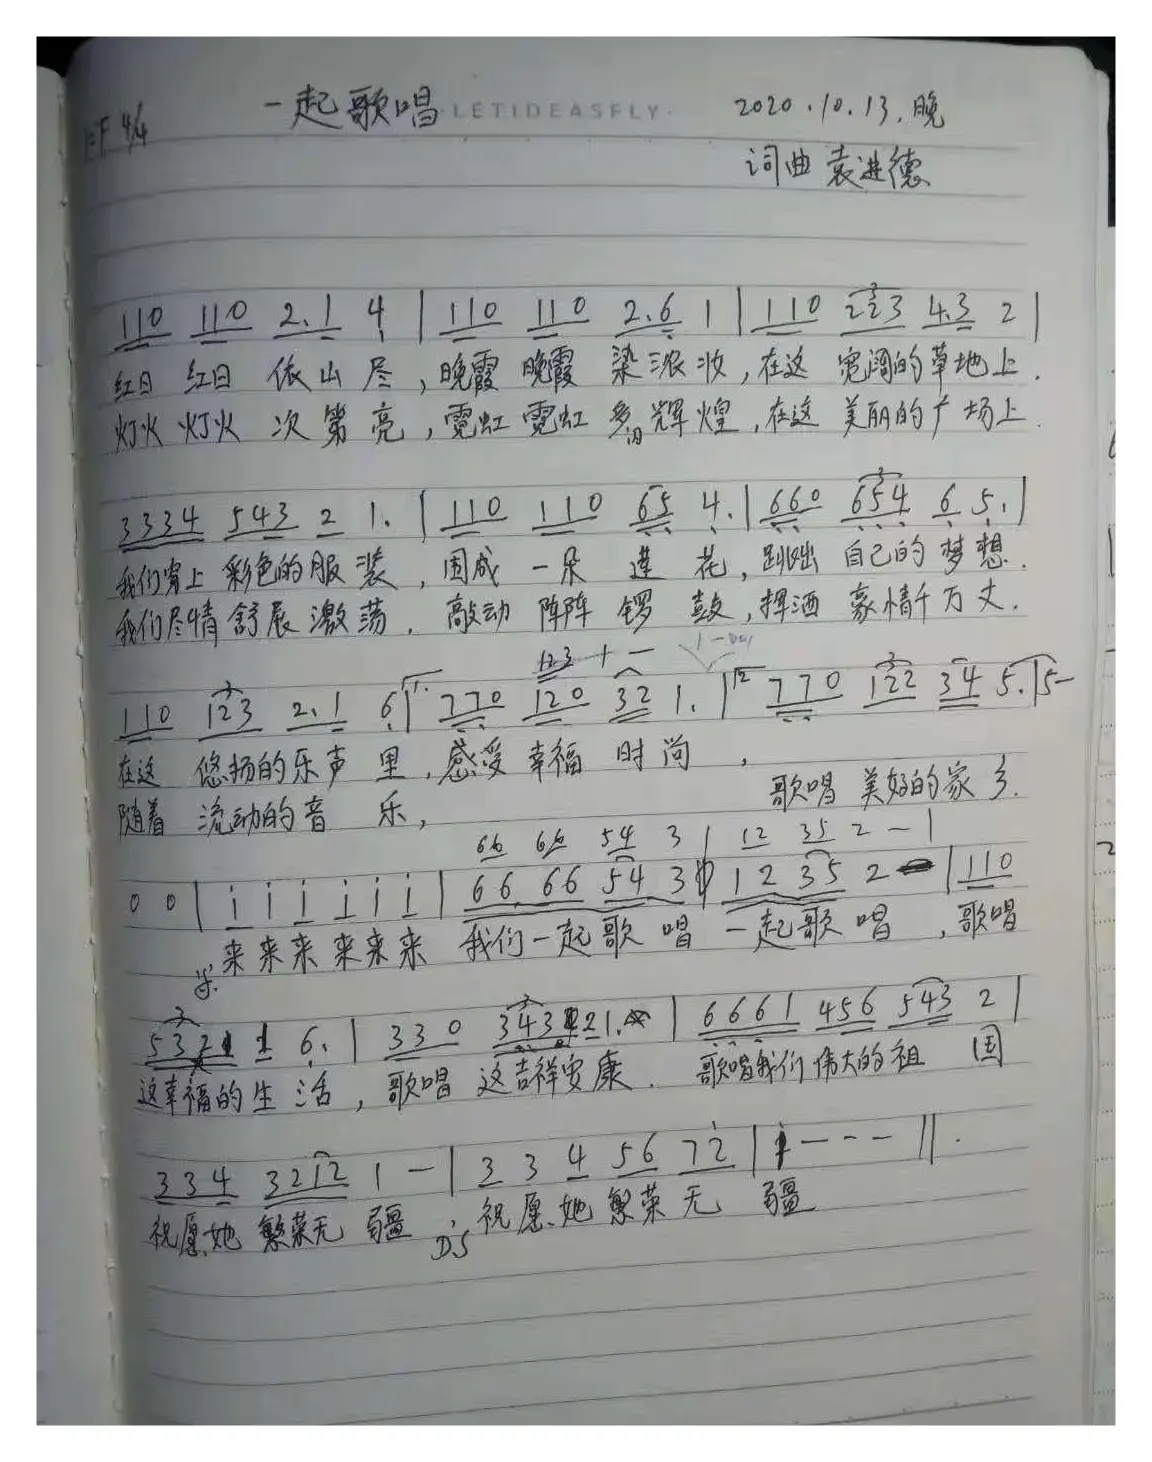 一起歌唱 LETIDEASFLY 2020.10.13.晚
1=F 4/4
词曲 袁进德
110 110 2.1 4 | 110 110 2.6 1 | 110 223 4.3 2 |
红日 红日 依山尽,晚霞 晚霞 染浓妆,在这 宽阔的草地上.
灯火 灯火 次第亮,霓虹 霓虹 多辉煌,在这 美丽的广场上.
3334 543 2 1. | 110 110 65 4. | 660 654 6 5. |
我们穿上 彩色的服装,围成 一朵 莲花,跳出 自己的梦想.
我们尽情 舒展激荡.敲动 阵阵 锣鼓,挥洒 豪情千万丈.
123 1 —
110 123 2.1 6 | 1. 770 120 32 1. | 2 770 122 34 5. | 5—
在这 悠扬的乐声里,感受 幸福 时尚,
随着 流动的音乐, 歌唱 美好的家乡.
66 66 54 3 | 12 35 2 — |
0 0 | i i i i i i | 66 66 54 3 | 12 35 2 | 110
来来来来来来 我们一起歌唱 一起歌唱,歌唱
532 1 6. | 330 343 21. | 6661 456 543 2 |
这幸福的生活,歌唱 这吉祥安康. 歌唱我们伟大的祖国
334 3212 1 — | 3 3 4 56 72 | i — — — ‖.
祝愿她 繁荣无疆,祝愿她 繁荣无疆
DS